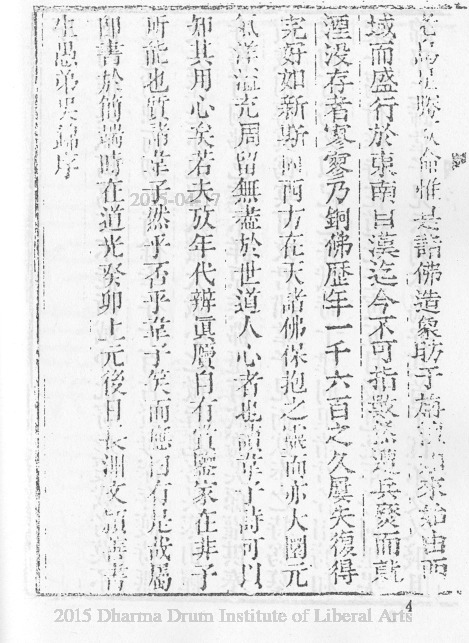 惟是諸佛造象昉于
域而盛行於東南曰漢迄今不可指數然遭兵燹而就
湮没存者寥寥乃銅佛歷年一千六百之久屢失復得
完好如新斯固西方在天諸佛保抱之靈而亦大圜元
氣洋溢充周留無盡於世道人心者也讀葦子詩可以
知其用心矣若夫攷年代辨眞贋自有賞鑒家在非予
所能也質諸葦子然乎否乎葦子笑而應曰有是哉屬
卽書於簡端時在道光癸卯上元後日長洲文 善書
生愚弟吳錦序
2015-04-17
4
2015 Dharma Drum Institute of Liberal Arts